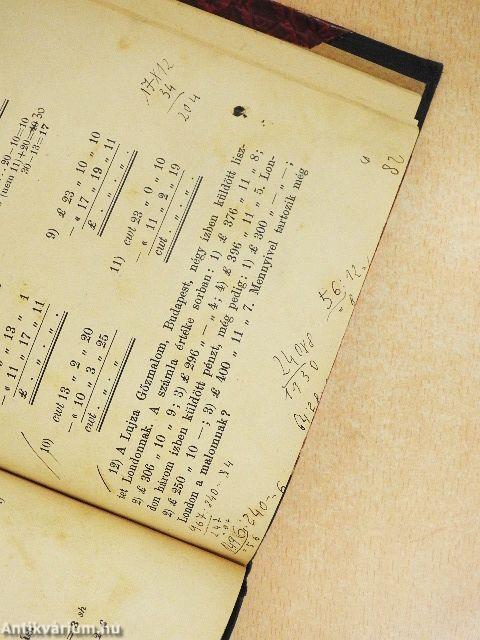 20-10=10
(nem 11)+20=40 30
30-13=17
17×12
34
204
„ 13 „ 1
— „ 11 „ 17 „ 11
£ . „ . „ .
9) £ 23 „ 10 „ 10
— „ 17 „ 19 „ 11
£ . „ . „ .
10)
cwt 13 „ 2 „ 20
— „ 10 „ 3 „ 25
cwt . „ . „ .
11) cwt 23 „ 0 „ 10
— „ 11 „ 2 „ 19
cwt . „ . „ .
12) A Lujza Gőzmalom, Budapest, négy izben küldött lisz-
tet Londonnak. A számla értéke sorban: 1) £ 376 „ 11 „ 8;
2) £ 306 „ 10 „ 9; 3) £ 296 „ — „ 4; 4) £ 396 „ 11 „ 5. Lon-
don három izben küldött pénzt, még pedig: 1) £ 300 „ — „ —;
2) £ 250 „ 10 „ —; 3) £ 400 „ 11 „ 7. Mennyivel tartozik még
London a malomnak?
82
56:12
967:240=
240=6
Antikvárium.hu